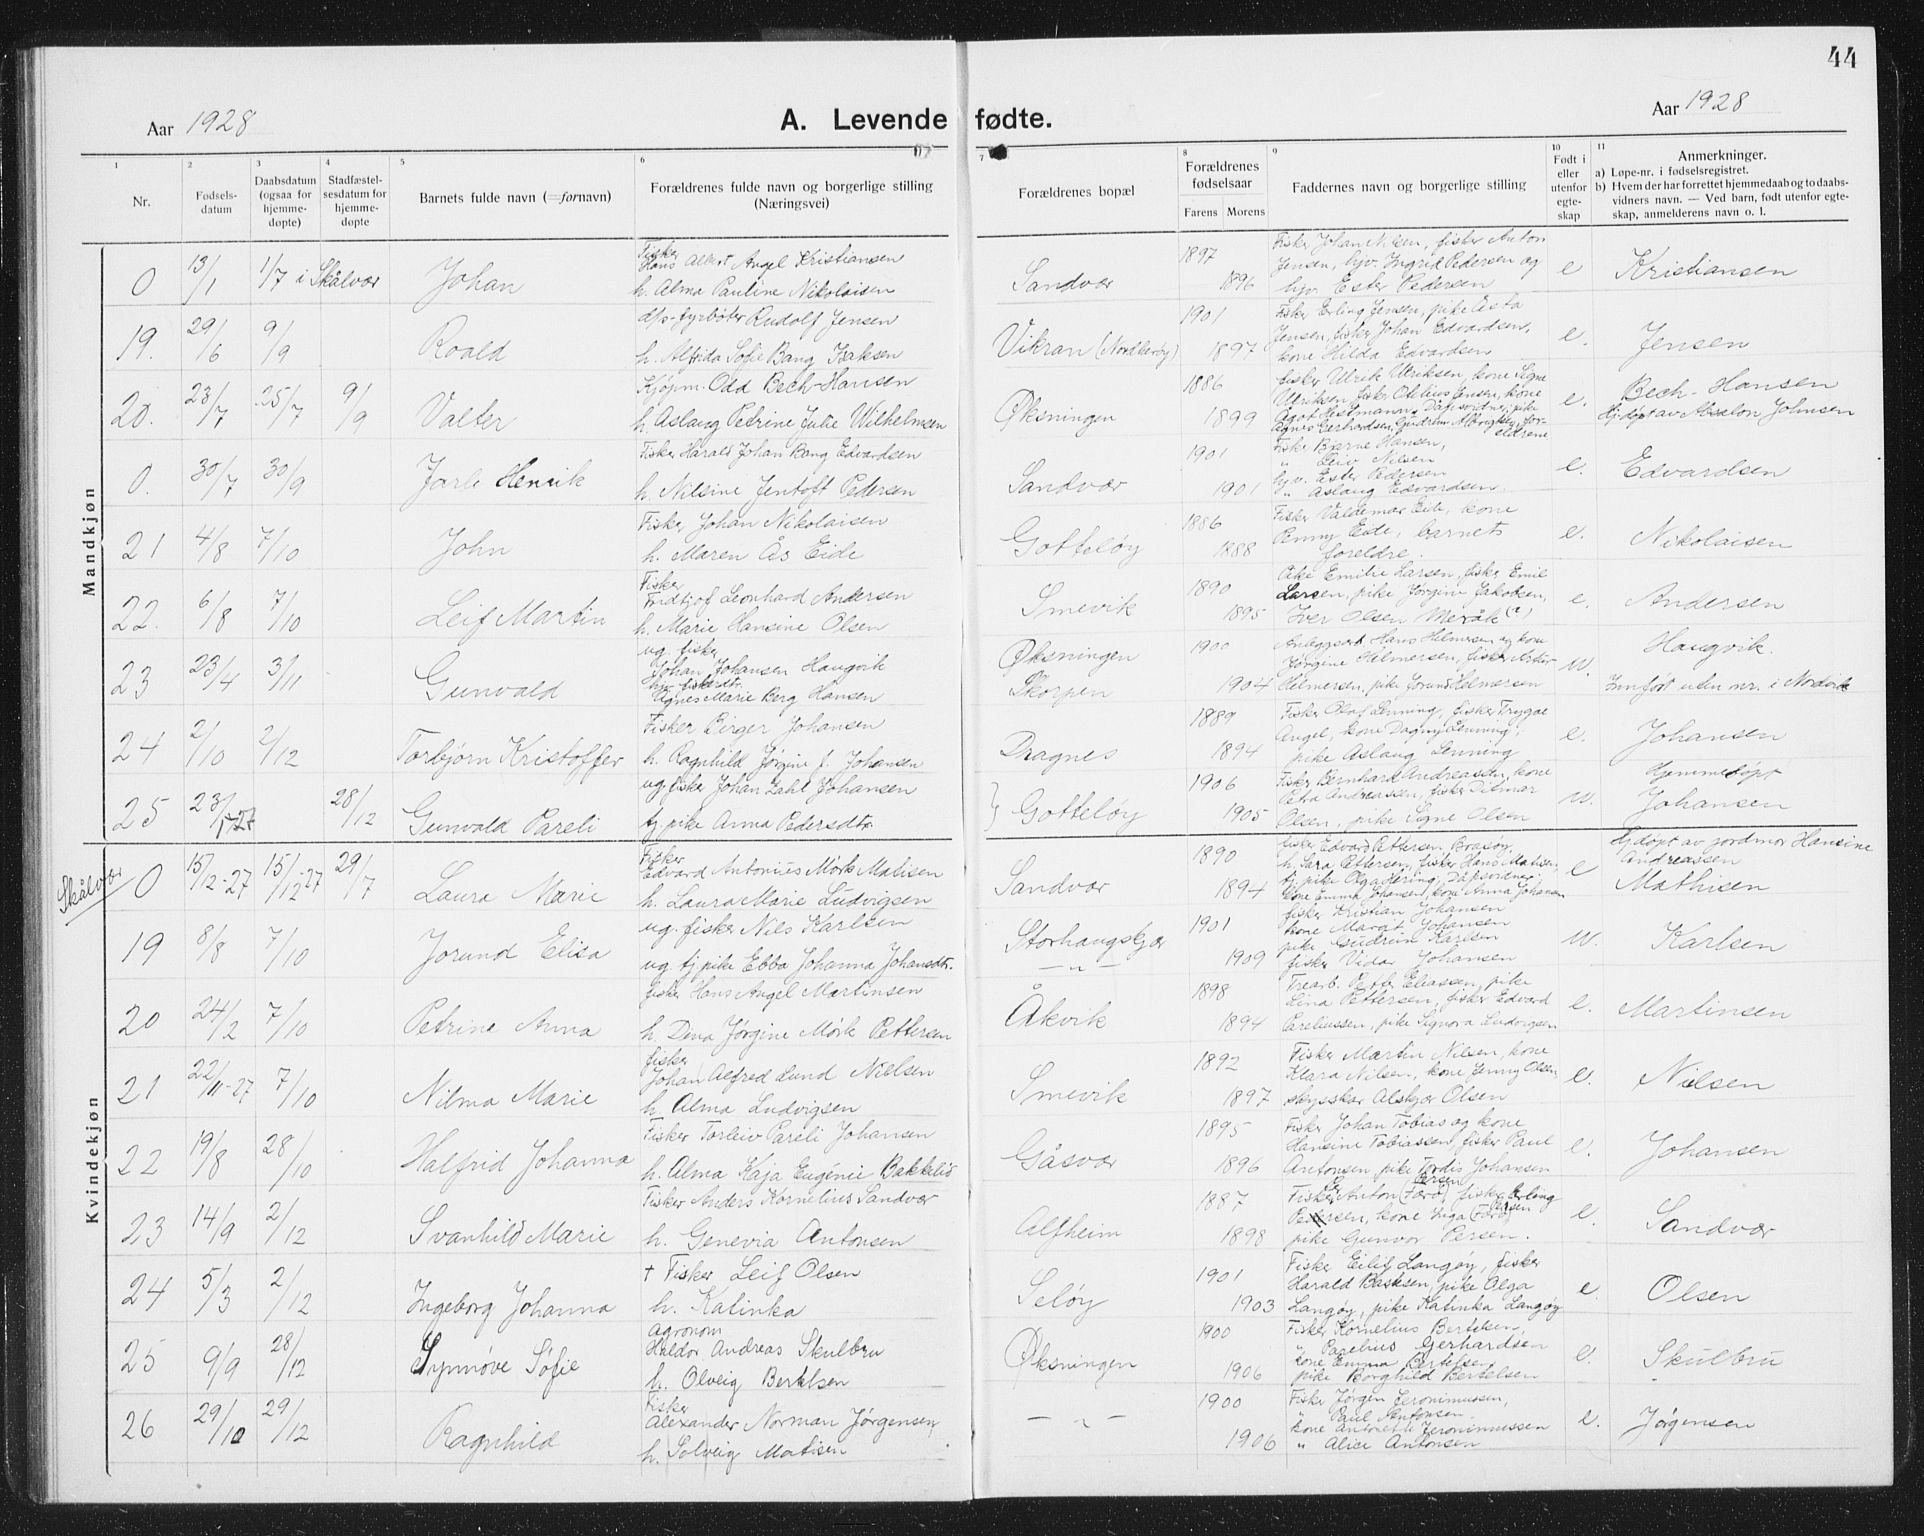 44
Aar 1928
A. Levende fødte.
Aar 1928
1 2 3 4 5 6 7 8 9 10 11
Nr.
Fødsels-
datum
Daabsdatum
(ogsaa for
hjemme-
døpte)
Stadfæstel-
sesdatum for
hjemme-
døpte
Barnets fulde navn (=fornavn)
Forældrenes fulde navn og borgerlige stilling
(Næringsvei)
Forældrenes bopæl
Forældrenes
fødselsaar
Farens Morens
Faddernes navn og borgerlige stilling
Født i
eller
utenfor
egte-
skap
Anmerkninger.
a) Løpe-nr. i fødselsregistret.
b) Hvem der har forrettet hjemmedaab og to daabs-
vidners navn. — Ved barn, født utenfor egte-
skap, anmelderens navn o. l.
Mandkjøn
0 13/1 1/7 i Skålvær Johan
Fisker
Hans Albert Angel Kristiansen
h. Alma Pauline Nikolaisen
Sandvær
1897
1896
Fisker Johan Nilsen, fisker Anton
Jensen, hjv. Ingrid Pedersen og
hjv. Ester Pedersen
e Kristiansen
19. 29/6 9/9 Roald
d/s-fyrbøter Rudolf Jensen
h. Alfrida Sofie Bang Isaksen
Vikran (Nordherøy)
1901
1897
Fisker Erling Jensen, pike Asta
Jensen, fisker Johan Edvardsen,
kone Hilda Edvardsen
e. Jensen
20. 23/7 25/7 9/9 Valter
Kjøpm. Odd Bech-Hansen
h. Aslaug Petrine Julie Wilhelmsen
Øksningen
1886
1899
fisker Ulrik Ulriksen, kone Signe
Ulriksen, fisker Otelius Jensen, kone
Ågot Hestmann. Dåpsordner: pike
Agnes Gerhardsen, Gudrun Albrigtsen, for-
eldrene
e. Bech-Hansen
Hj.døpt av Absalon Johnsen
0. 30/7 30/9 Jarle Henrik
Fisker Harald Johan Bang Edvardsen
h. Nilsine Jentoft Pedersen
Sandvær
1901
1901
Fisker Bjarne Hansen,
" Leiv Nilsen
hjv. Ester Pedersen
" Aslaug Edvardsen.
e. Edvardsen
21 4/8 7/10 John
Fisker Johan Nikolaisen
h. Maren Ås Eide
Gotteløy
1886
1888
Fisker Valdemar Eide, kone
Penny Eide, barnets
foreldre.
e. Nikolaisen
22. 6/8 7/10 Leif Martin
Fisker
Fridtjof Leonhard Andersen
h. Marie Hansine Olsen
Smevik
1890
1895
Pike Emilie Larsen, fisker Emil
Larsen, pike Jørgine Jakobsen,
Iver Olsen Meråk (?)
e. Andersen
23 23/4 3/11 Gunvald
ug. fisker
Johan Johansen Haugvik
Agnes Marie Berg Hansen
Øksningen
Skorpen
1900
1904
Anleggsarb. Hans Helmersen og kone
Jørgine Helmersen, fisker Artur
Helmersen, pike Jorund Helmersen
u. Haugvik.
Innført uten nr. i Nordvik
24 2/10 2/12 Torbjørn Kristoffer
Fisker Birger Johansen
h. Ragnhild Jørgine f. Johansen
Dragnes
1889
1894
Fisker Olaf Lenning, fisker Trygve
Angel, kone Dagny Lenning,
pike Aslaug Lenning
e. Johansen
25 28/12 Gunvald Pareli
ug. fisker Johan Zahl Johansen
tj.pike Anna Pedersdtr.
} Gotteløy
1906
1905
Fisker Bernhard Andreassen, kone
Petra Andreassen, fisker Dilmar
Olsen, pike Signe Olsen
u. Hjemmedøpt
Johansen
Kvindekjøn
Skålvær
0 15/12-27 15/12-27 29/7 Laura Marie
Fisker
Edvard Antonius Mørk Matisen
h. Laura Marie Ludvigsen
Sandvær
1890
1894
fisker Edvard Pettersen Brasøy,
h. Sara Pettersen, fisker Hans Matisen,
tj.pike Olga Hering. Dåpsordner:
kone Emma Johansen, kone Anna Johansen
e Hj.døpt av jordmor Hansine
Andreassen
Mathisen
19 8/8 7/10 Jorund Elisa
ug. fisker Nils Karlsen
ug. tj.pike Ebba Johanna Johansdtr.
Storhaugskjær
— " —
1901
1909
fisker Kristian Johansen
kone Margt Johansen
pike Gudrun Karlsen
fisker Vidar Johansen
u. Karlsen
20 24/2 7/10 Petrine Anna
fisker Hans Angel Martinsen
h. Dena Jørgine Mørk Pettersen
Åkvik
1898
1894
Trearb. Peder Eliassen, pike
Lina Pettersen, fisker Edvard
Pareliussen, pike Signora Ludvigsen
e. Martinsen
21 22/11-27 7/10 Nilma Marie
fisker
Johan Alfred Lund Nielsen
h. Alma Ludvigsen
Smevik
1892
1897
Fisker Martin Nilsen, kone
Klara Nilsen, kone Jenny Olsen,
skysskar Alskjær Olsen
e. Nielsen
22 19/8 28/10 Halfrid Johanna
Fisker Torleiv Pareli Johansen
h. Alma Kaja Eugénie Bakkelid
Gåsvær
1895
1896
Fisker Johan Tobias og kone
Hansine Tobiassen, fisker Paul
Antonsen, pike Tordis Johansen
e. Johansen
23 14/9 2/12 Svanhild Marie
Fisker Anders Kornelius Sandvær
h. Genevia Antonsen
Alfheim
1887
1898
Fisker Anton Persen (Færø), fisker Erling
Persen, kone Inga Persen (Færø)
pike Gunvor Persen.
e. Sandvær
24 5/3 2/12 Ingeborg Johanna
† Fisker Leif Olsen
h. Katinka
Seløy
1901
1903
Fisker Eilif Langøy, fisker
Harald Basksen, pike Olga
Langøy, pike Katinka Langøy
e. Olsen
25 9/9 28/12 Synnøve Sofie
Agronom
Haldor Andreas Skulbru
h. Olveig Bertelsen
Øksningen
1900
1906
Fisker Kornelius Bertelsen,
" Parelius Gerhardsen
kone Emma Bertelsen
pike Borghild Bertelsen
e. Skulbru
26 29/10 29/12 Ragnhild
Fisker
Alexander Norman Jørgensen,
h. Solveig Matisen
— " —
1900
1906
Fisker Jørgen Jeronimussen,
" Paul Antonsen.
kone Antonette Jeronimussen
" Alice Antonsen
e. Jørgensen